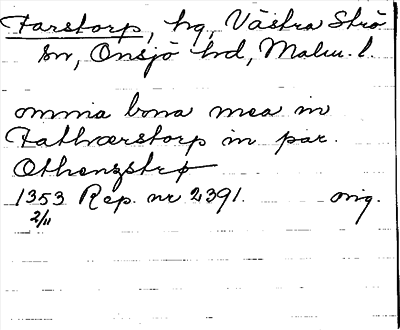 Farstorp, hg, Västra Strö
sn, Onsjö hd, Malm. l.
omnia bona mea in
Fathærstorp in par.
Othenzstrø
1353 Rep. nr 2391. orig.
2/11